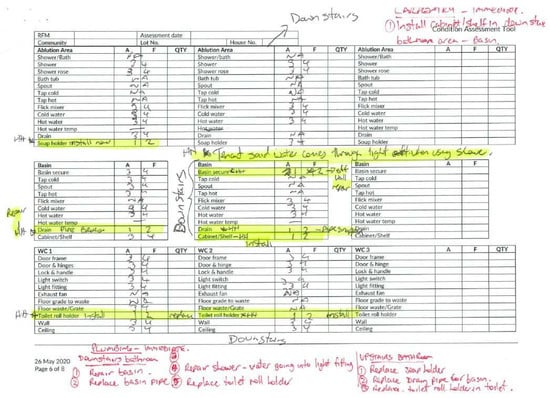 Downstairs
① Install Cabinet/shelf in downstairs
bathroom area - Basin
Condition Assessment Tool
RFM Assessment date
Community Lot No. House No.
Ablution Area A F QTY Ablution Area A F QTY Ablution Area A F QTY
Shower/Bath NA Shower/Bath NA Shower/Bath
Shower 3 4 Shower 3 4 Shower
Shower rose 3 4 Shower rose 3 4 Shower rose
Bath tub NA Bath tub NA Bath tub
Spout NA Spout NA Spout
Tap cold NA Tap cold NA Tap cold
Tap hot NA Tap hot NA Tap hot
Flick mixer 3 4 Flick mixer 3 4 Flick mixer
Cold water 3 4 Cold water 3 4 Cold water
Hot water 3 4 Hot water 3 4 Hot water
Hot water temp Hot water Hot water temp
Drain 3 4 Drain NA Drain
Soap holder Install new 1 2 Soap holder 3 4 Soap holder
Tenant said water comes through light when using shower.
Basin A F QTY Basin A F QTY Basin A F QTY
Basin secure 3 4 Basin secure 2 off Basin secure
Tap cold NA Tap cold NA wall Tap cold
Spout NA Spout NA Spout
Tap hot NA Tap hot NA Tap hot
Flick mixer 3 4 Flick mixer 3 4 Flick mixer
Cold water 3 4 Cold water 3 4 Cold water
Hot water 3 4 Hot water 3 4 Hot water
Hot water temp Hot water temp Hot water temp
Repair Drain Pipe 1 2 Drain 1 2 Drain
Cabinet/Shelf 3 4 Cabinet/Shelf 1 2 Cabinet/Shelf
Downstairs
Install
WC 1 A F QTY WC 2 A F QTY WC 3 A F QTY
Door frame 3 4 Door frame 3 4 Door frame
Door & hinges 3 4 Door & hinge 3 4 Door & hinges
Lock & handle 3 4 Lock & handle 3 4 Lock & handle
Light switch 3 4 Light switch 3 4 Light switch
Light fitting 3 4 Light fitting 3 4 Light fitting
Exhaust fan NA Exhaust fan NA Exhaust fan
Floor grade to waste N 2 Floor grade to waste NA Floor grade to waste
Floor waste/Grate 3 4 Floor waste/Grate NA Floor waste/Grate
Toilet roll holder Install 1 2 replace Toilet roll holder 1 2 install Toilet roll holder
Wall 3 4 Wall 3 4 Wall
Ceiling 3 4 Ceiling 3 4 Ceiling
Downstairs
26 May 2020
Page 6 of 8
Plumbing - Immediate
Downstairs bathroom
① Repair basin.
② Replace basin pipe
③
④ Repair shower - water going into light fitting
⑤ Replace toilet roll holder
Upstairs Bathroom
① Replace soap holder
② Replace Drain pipe for basin.
③ Replace toilet roll holder in toilet.